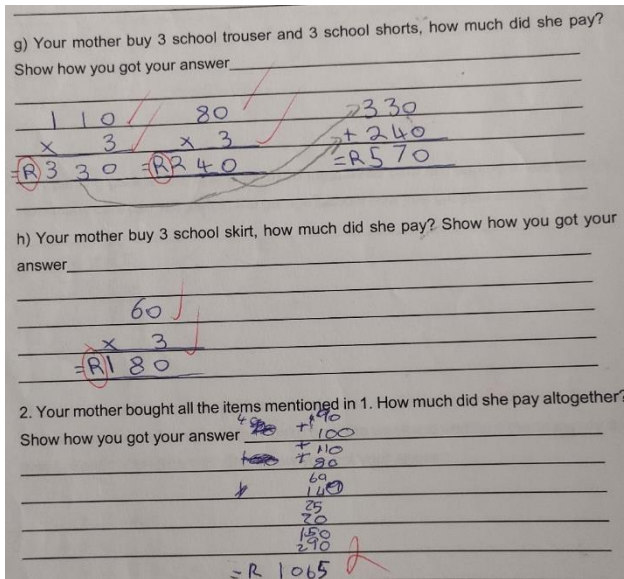 g) Your mother buy 3 school trouser and 3 school shorts, how much did she pay?
Show how you got your answer
110 80 330
x 3 x 3 + 240
=R330 =R240 =R570
h) Your mother buy 3 school skirt, how much did she pay? Show how you got your
answer
60
x 3
=R180
2. Your mother bought all the items mentioned in 1. How much did she pay altogether?
Show how you got your answer
+100
+110
+80
60
140
25
20
150
290
=R 1065